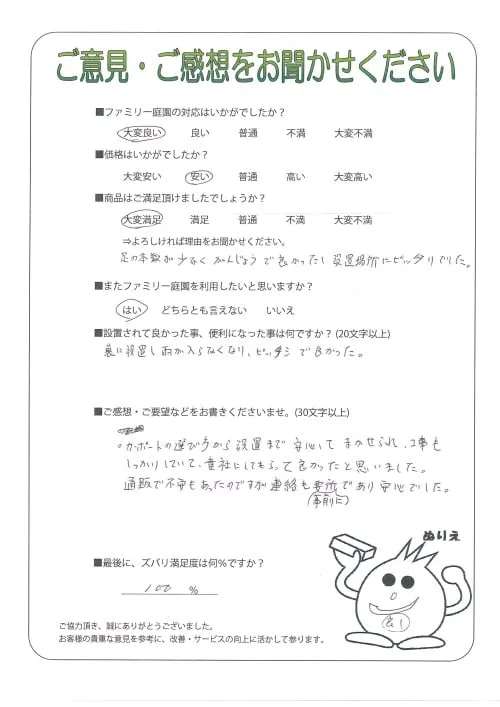 ご意見・ご感想をお聞かせください
■ファミリー庭園の対応はいかがでしたか？
大変良い 良い 普通 不満 大変不満
■価格はいかがでしたか？
大変安い 安い 普通 高い 大変高い
■商品はご満足頂けましたでしょうか？
大変満足 満足 普通 不満 大変不満
⇒よろしければ理由をお聞かせください。
足の本数が少なく がんじょうで良かったし 設置場所にピッタリでした。
■またファミリー庭園を利用したいと思いますか？
はい どちらとも言えない いいえ
■設置されて良かった事、便利になった事は何ですか？(20文字以上)
裏に設置し雨が入らなくなり、ピッタシで良かった。
■ご感想・ご要望などをお書きくださいませ。(30文字以上)
・カーポートの選び方から設置まで安心してまかせられ、工事も
しっかりしていて、貴社にしてもらって良かったと思いました。
通販で不安もあったのですが連絡も
(事前に)
であり安心でした。
■最後に、ズバリ満足度は何％ですか？
100 ％
ぬりえ
ご協力頂き、誠にありがとうございました。
お客様の貴重な意見を参考に、改善・サービスの向上に活かして参ります。